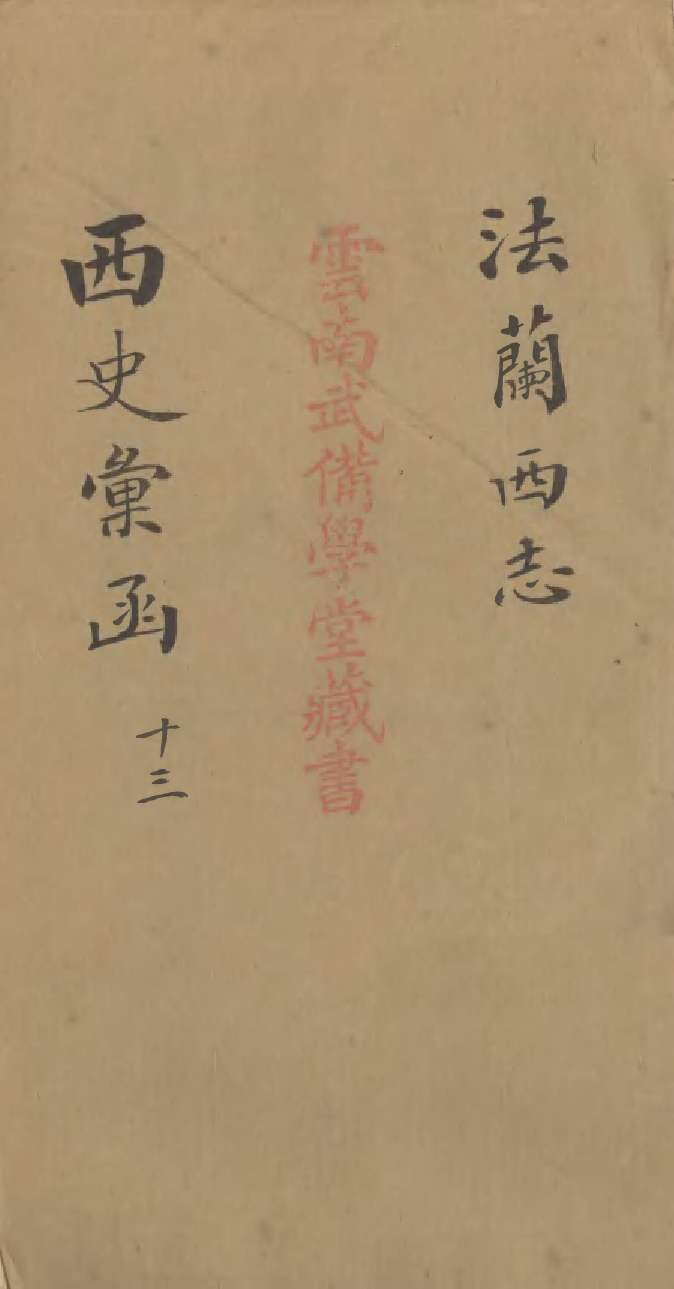 法蘭西志
雲南武備學堂藏書
西史彙函
十三